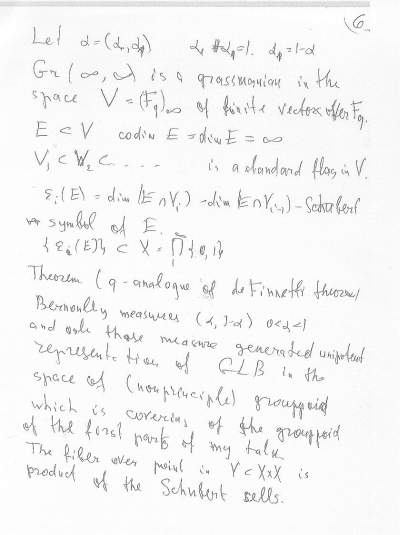 6
Let α=(α₁,α₂) α₁+α₂=1. α₂=1-α
Gr(∞,∞) is a grassmanian in the
space V=(F_q)_∞ of finite vectors over F_q.
E ⊂ V codim E = dim E = ∞
V₁ ⊂ V₂ ⊂ .... is a standard flag in V.
ε_i(E) = dim(E∩V_i) - dim(E∩V_{i-1}) - Schubert
symbol of E.
{ε_i(E)} ⊂ X = ∏_1^∞ {0,1}
Theorem (q-analogue of de Finnetti theorem)
Bernoully measures (α,1-α) 0<α<1
and only those measure generated unipotent
representation of GLB in the
space of (nonprinciple) grouppoid
which is covering of the grouppoid
of the first parts of my talk
The fiber over point in Y ⊂ X×X is
product of the Schubert sells.